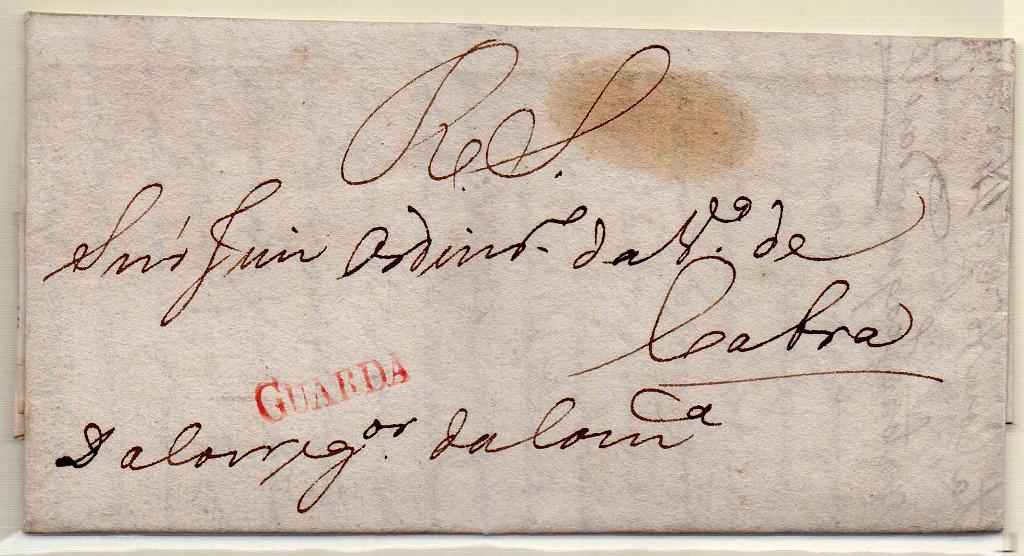 R. S.
Snr Juiz Ordinr.º da Vª. de
Cabra
GUARDA
Do Corregor. da Comca